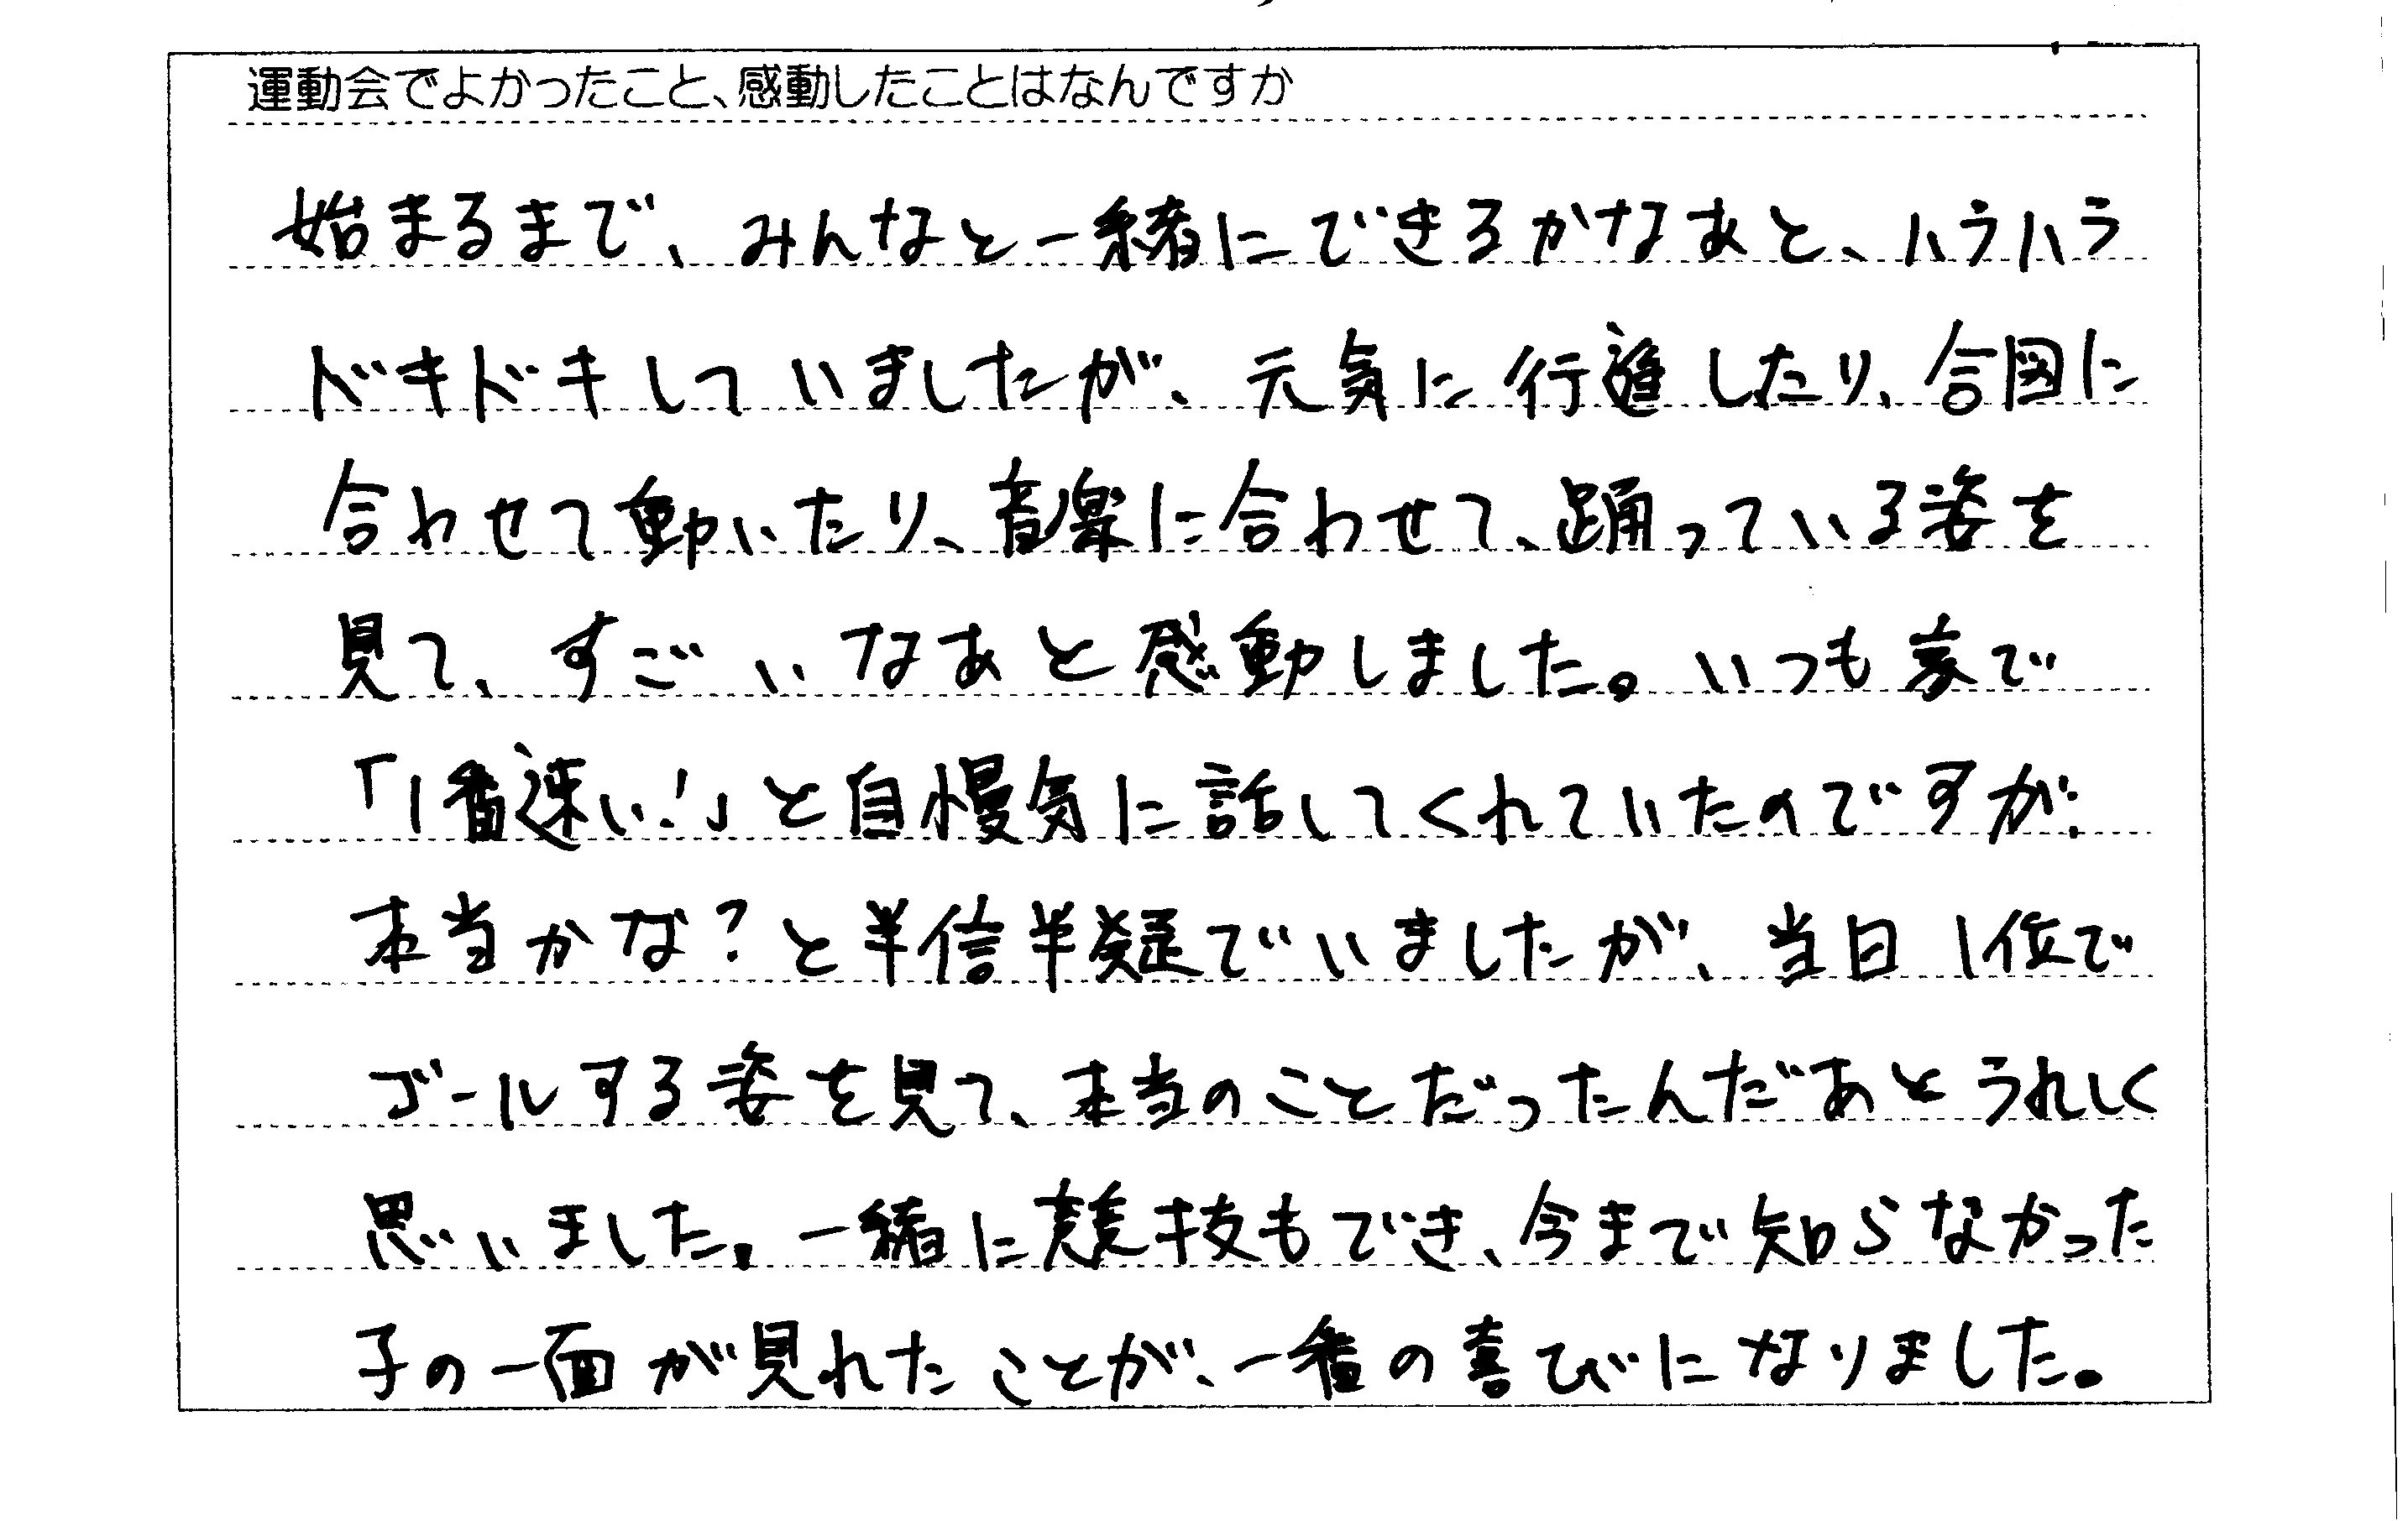 運動会でよかったこと、感動したことはなんですか
始まるまで、みんなと一緒にできるかなあと、ハラハラ
ドキドキしていましたが、元気に行進したり、合図に
合わせて動いたり、音楽に合わせて、踊っている姿を
見て、すごいなあと感動しました。いつも家で
「1番速い!」と自慢気に話してくれていたのですが、
本当かな?と半信半疑でいましたが、当日1位で
ゴールする姿を見て、本当のことだったんだあとうれしく
思いました。一緒に競技もでき、今まで知らなかった
子の一面が見れたことが、一番の喜びになりました。